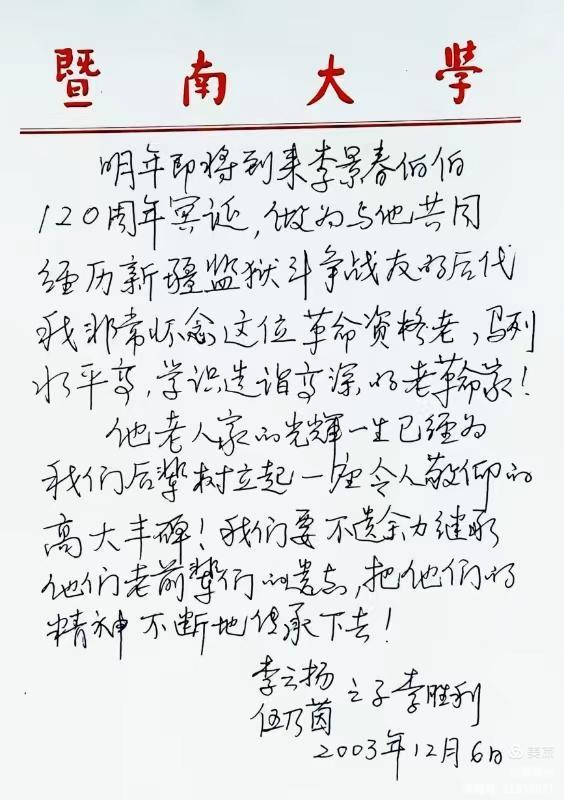 暨南大學
明年即将到来李景春伯伯
120周年冥诞,做为与他共同
经历新疆监狱斗争战友的后代
我非常怀念这位革命资格老,马列
水平高,学识造诣高深的老革命家!
他老人家的光輝一生已经为
我们后辈树立起一座令人敬仰的
高大丰碑!我们要不遗余力继承
他们老前辈们的遗志,把他们的
精神不断地传承下去!
李云扬
伍乃茵
之子李胜利
2003年12月6日
美篇